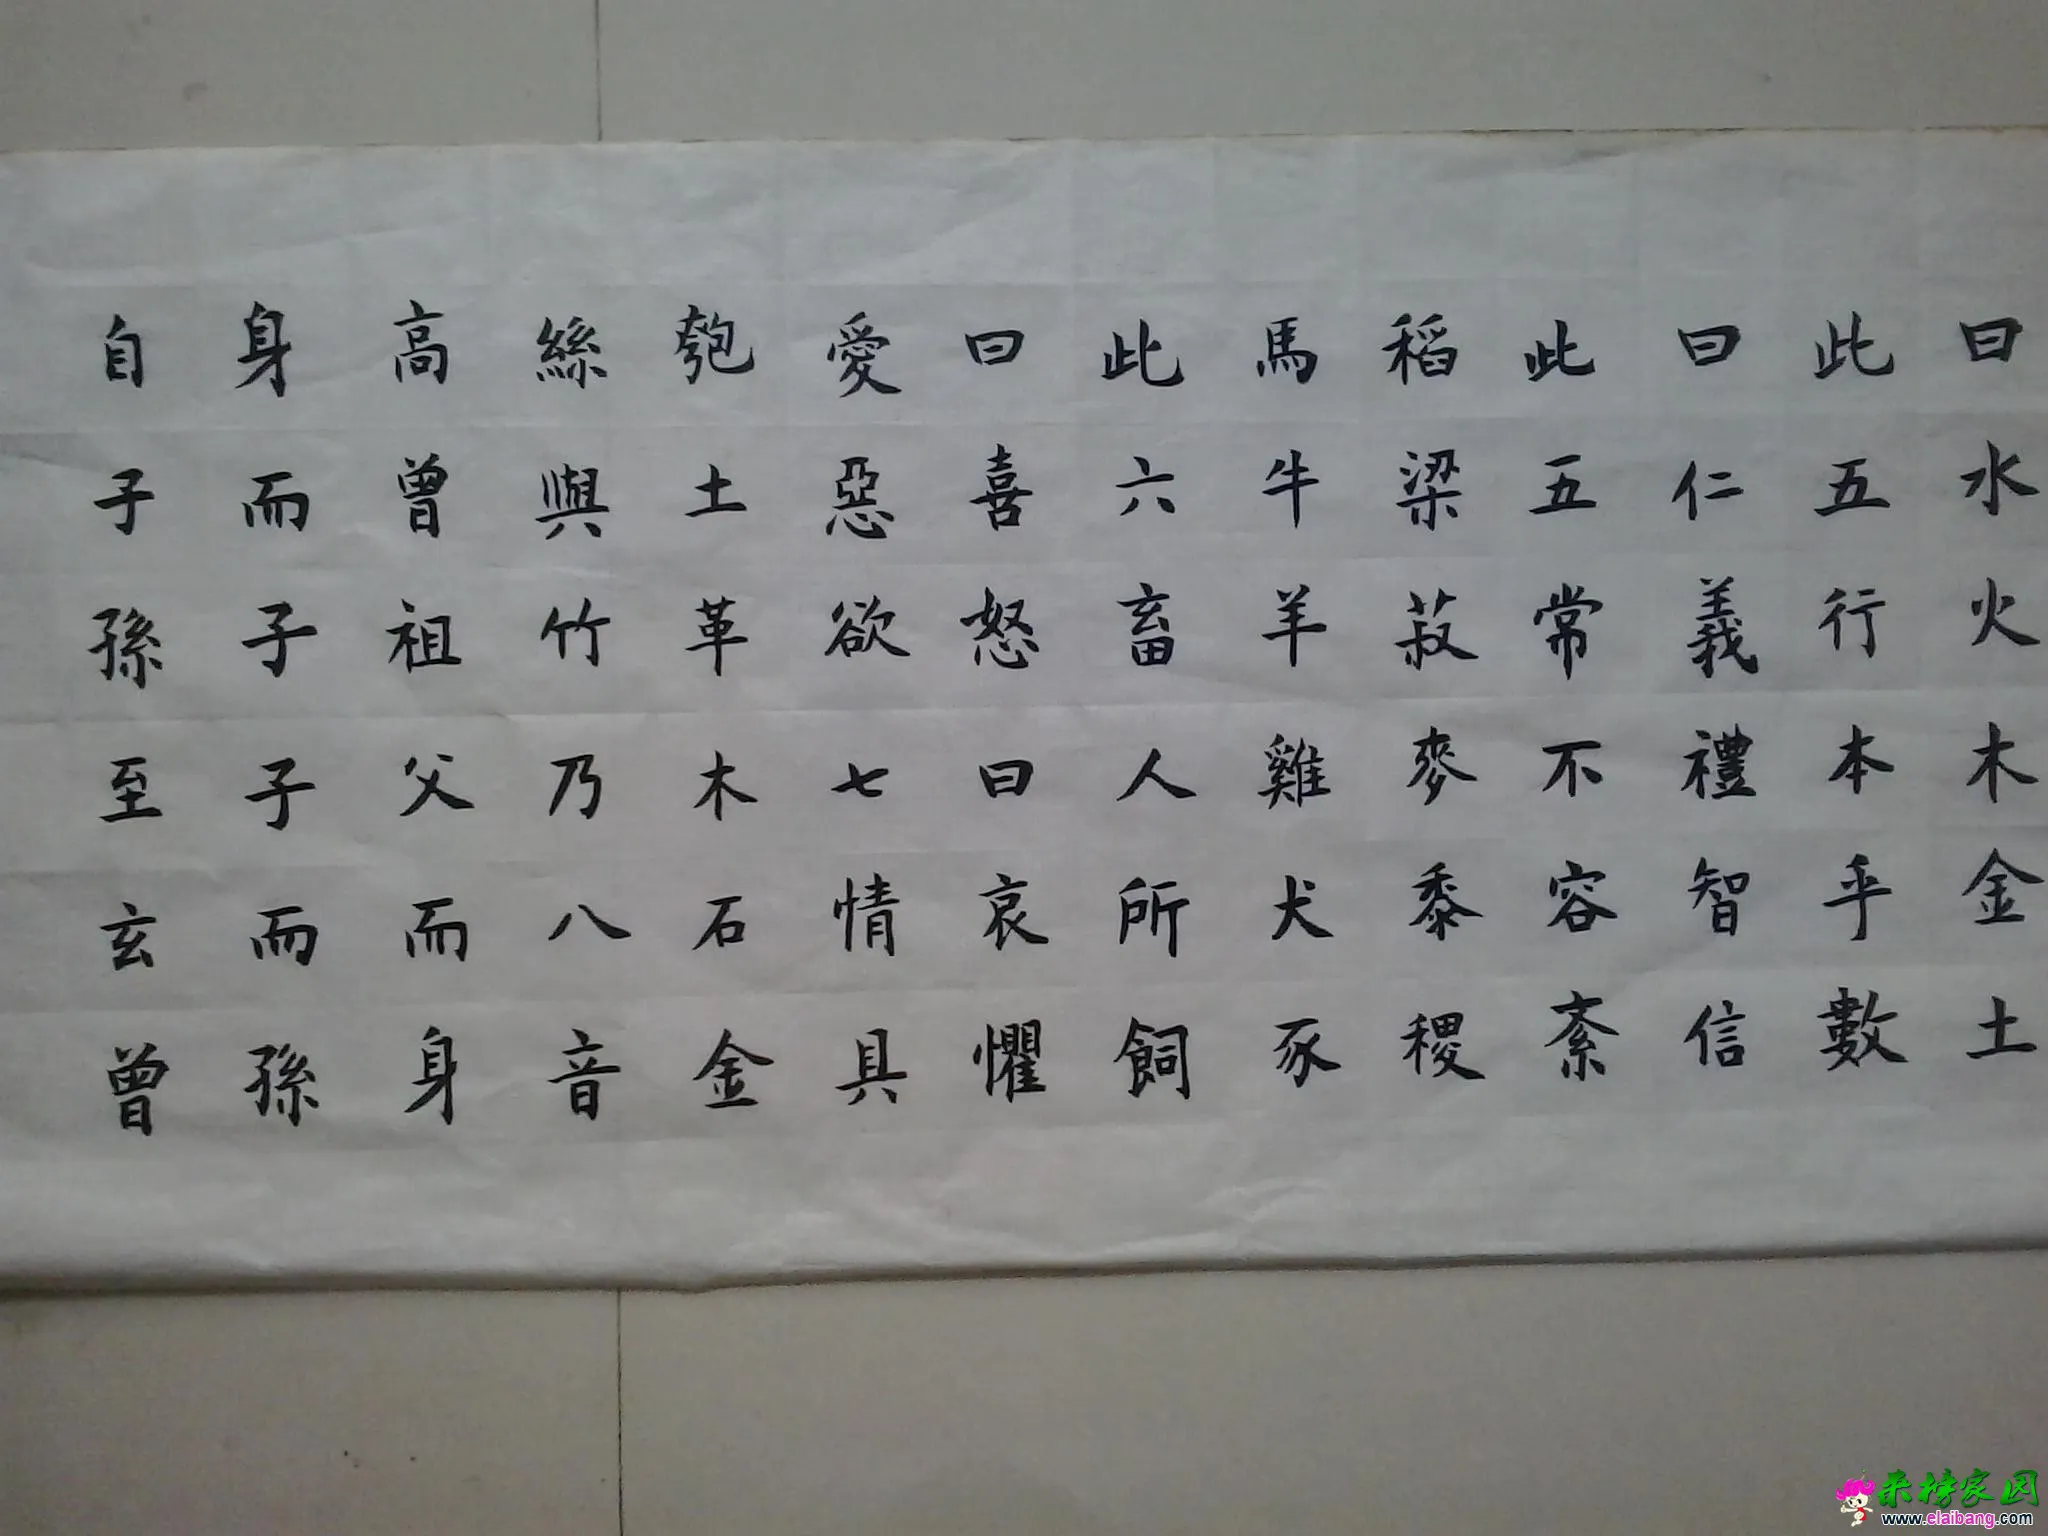 曰水火木金土
此五行本乎數
曰仁義禮智信
此五常不容紊
稻梁菽麥黍稷
馬牛羊雞犬豕
此六畜人所飼
曰喜怒曰哀懼
愛惡欲七情具
匏土革木石金
絲與竹乃八音
高曾祖父而身
身而子子而孫
自子孫至玄曾
来榜家园
www.elaibang.com